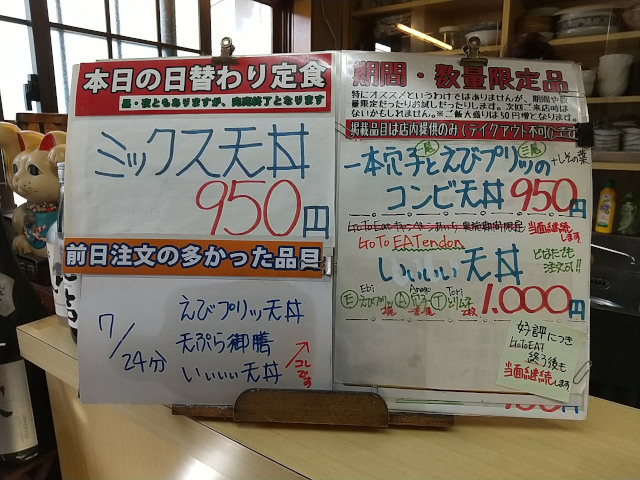 本日の日替わり定食
昼・夜ともありますが、完売終了となります
ミックス天丼
950円
前日注文の多かった品目
7/24分
えびプリッツ天丼
天ぷら御膳
いいいい天丼
コレです
期間・数量限定品
特にオススメというわけではありませんが、期間や数
量限定だったりお試しだったりします。次回ご来店時は
ないかもしれません。※ご飯大盛りは50円増となります。
掲載品目は店内提供のみ(テイクアウト不可)です
一本穴子とえびプリッツの
+しその葉
コンビ天丼 950円
当面継続します
GoTo EATendon
どなたでも
注文可!!
いいいい天丼
Ebi Anago Tori
1.000円
好評につき
GoToEAT
終了後も
当面継続します